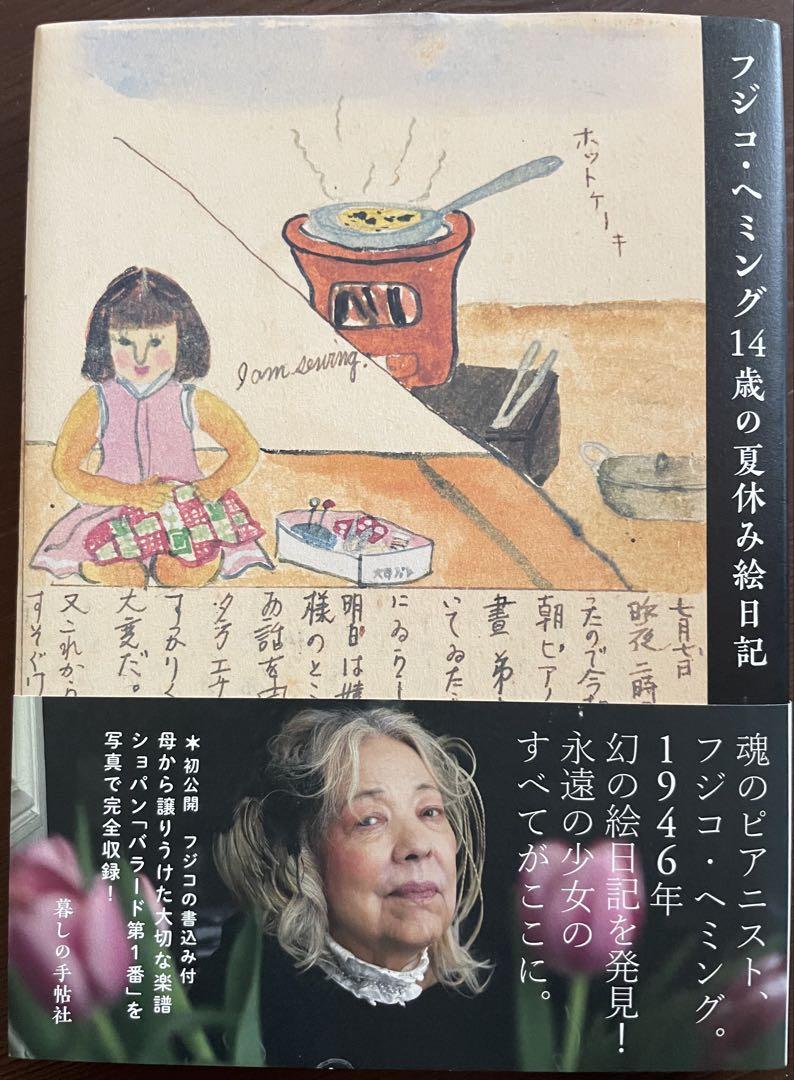 フジコ・ヘミング14歳の夏休み絵日記
ホットケーキ
I am sewing.
七月七日
昨夜二時
ったので今
朝ピアノ
晝 弟
いてゐた
にゐらー
明日は
様のとこ
お話を
夕方 エナ
すかりく
大変だ。
又これから
すそぐけ
魂のピアニスト、
フジコ・ヘミング。
1946年
幻の絵日記を発見!
永遠の少女の
すべてがここに。
*初公開 フジコの書込み付
母から譲りうけた大切な楽譜
ショパン「バラード第1番」を
写真で完全収録!
暮しの手帖社